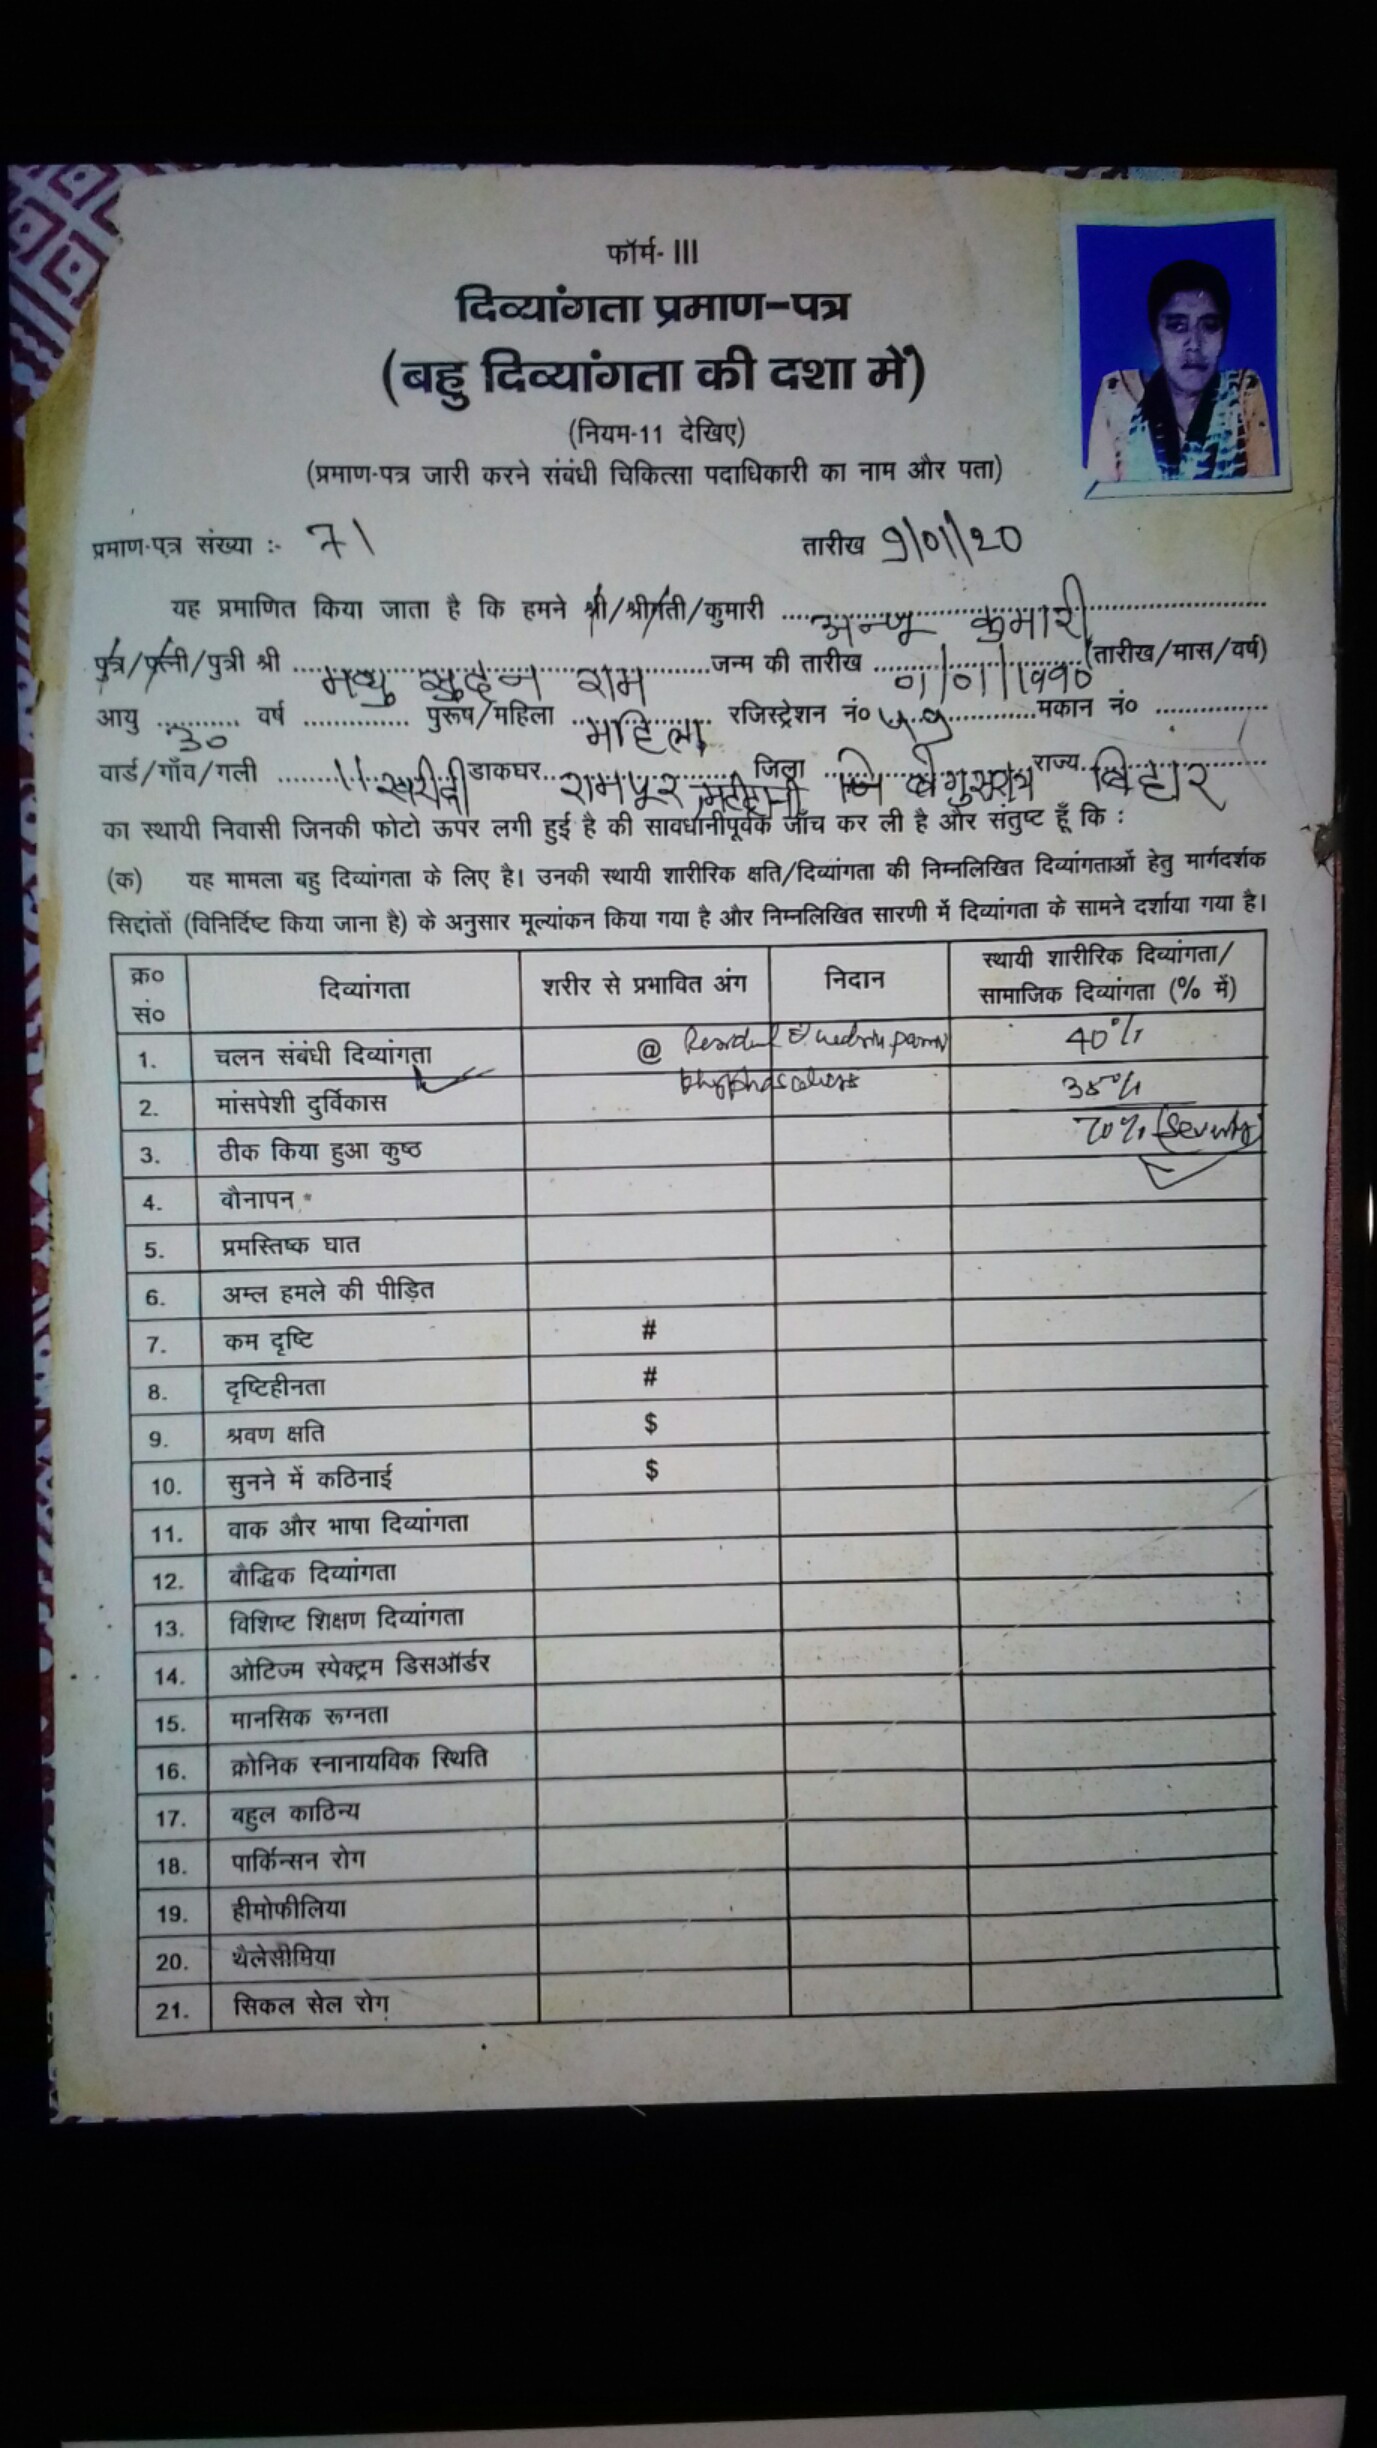 फॉर्म- III
दिव्यांगता प्रमाण-पत्र
(बहु दिव्यांगता की दशा में)
(नियम-11 देखिए)
(प्रमाण-पत्र जारी करने संबंधी चिकित्सा पदाधिकारी का नाम और पता)
प्रमाण-पत्र संख्या :- 71 तारीख 9/01/20
यह प्रमाणित किया जाता है कि हमने श्री/श्रीमती/कुमारी अन्जू कुमारी
पुत्र/पत्नी/पुत्री श्री मधु सुदन राम जन्म की तारीख ०१/०१/१९९० (तारीख/मास/वर्ष)
आयु 30 वर्ष पुरूष/महिला महिला रजिस्ट्रेशन नं० ५९ मकान नं०
वार्ड/गाँव/गली 11 डाकघर रामपुर जिला राज्य बिहार
का स्थायी निवासी जिनकी फोटो ऊपर लगी हुई है की सावधानीपूर्वक जाँच कर ली है और संतुष्ट हूँ कि :
(क) यह मामला बहु दिव्यांगता के लिए है। उनकी स्थायी शारीरिक क्षति/दिव्यांगता की निम्नलिखित दिव्यांगताओं हेतु मार्गदर्शक
सिद्दांतों (विनिर्दिष्ट किया जाना है) के अनुसार मूल्यांकन किया गया है और निम्नलिखित सारणी में दिव्यांगता के सामने दर्शाया गया है।
क्र० सं० दिव्यांगता शरीर से प्रभावित अंग निदान स्थायी शारीरिक दिव्यांगता/ सामाजिक दिव्यांगता (% में)
1. चलन संबंधी दिव्यांगता @ 40%
2. मांसपेशी दुर्विकास 38%
3. ठीक किया हुआ कुष्ठ 70% (Seventy)
4. बौनापन
5. प्रमस्तिष्क घात
6. अम्ल हमले की पीड़ित
7. कम दृष्टि #
8. दृष्टिहीनता #
9. श्रवण क्षति $
10. सुनने में कठिनाई $
11. वाक और भाषा दिव्यांगता
12. बौद्धिक दिव्यांगता
13. विशिष्ट शिक्षण दिव्यांगता
14. ओटिज्म स्पेक्ट्रम डिसऑर्डर
15. मानसिक रूग्नता
16. क्रोनिक स्नानायविक स्थिति
17. बहुल काठिन्य
18. पार्किन्सन रोग
19. हीमोफीलिया
20. थैलेसीमिया
21. सिकल सेल रोग